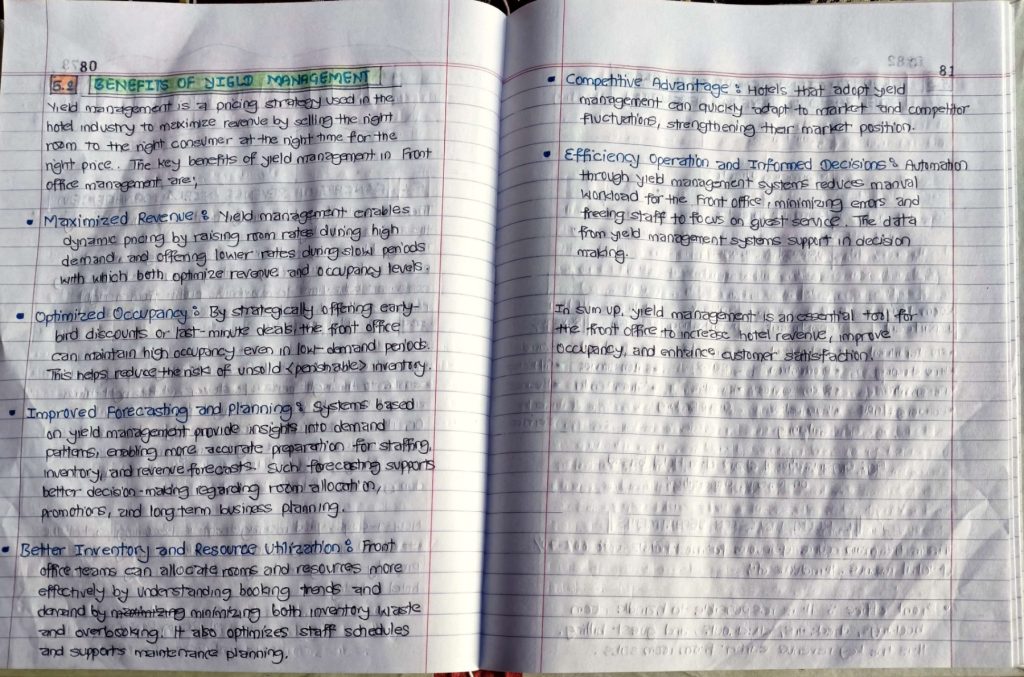 80
5.2 BENEFITS OF YIELD MANAGEMENT
Yield management is a pricing strategy used in the
hotel industry to maximize revenue by selling the right
room to the right consumer at the right time for the
right price. The key benefits of yield management in Front
office management are;
• Maximized Revenue: Yield management enables
dynamic pricing by raising room rates during high
demand, and offering lower rates during slow periods
with which both optimize revenue and occupancy levels.
• Optimized Occupancy: By strategically offering early-
bird discounts or last-minute deals, the front office
can maintain high occupancy even in low-demand periods.
This helps reduce the risk of unsold <perishable> inventory.
• Improved Forecasting and Planning: Systems based
on yield management provide insights into demand
patterns, enabling more accurate preparation for staffing,
inventory, and revenue forecasts. Such forecasting supports
better decision-making regarding room allocation,
promotions, and long term business planning.
• Better Inventory and Resource Utilization: Front
office teams can allocate rooms and resources more
effectively by understanding booking trends and
demand by minimizing both inventory waste
and overbooking. It also optimizes staff schedules
and supports maintenance planning.
81
• Competitive Advantage: Hotels that adopt yield
management can quickly adapt to market and competitor
fluctuations, strengthening their market position.
• Efficiency Operation and Informed Decisions: Automation
through yield management systems reduces manual
workload for the front office, minimizing errors and
freeing staff to focus on guest service. The data
from yield management systems support in decision
making.
In sum up, yield management is an essential tool for
the front office to increase hotel revenue, improve
occupancy, and enhance customer satisfaction.